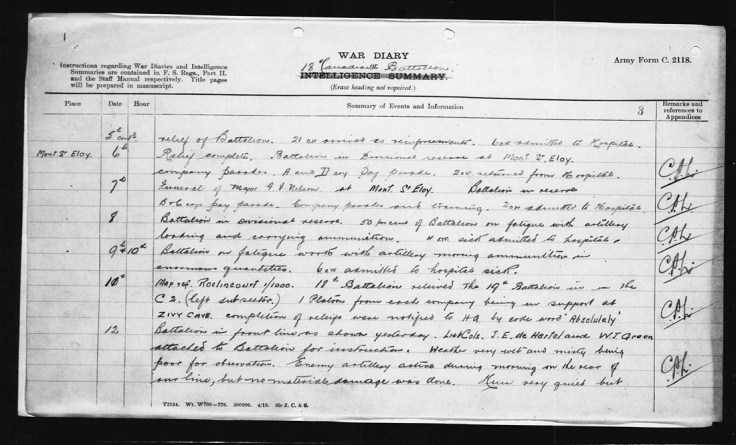 1
Instructions regarding War Diaries and Intelligence
Summaries are contained in F. S. Regs., Part II.
and the Staff Manual respectively. Title pages
will be prepared in manuscript.
WAR DIARY
18 Canadian Battalion.
INTELLIGENCE SUMMARY.
(Erase heading not required.)
Army Form C. 2118.
Place
Date
Hour
Summary of Events and Information
3
Remarks and
references to
Appendices
5th relief of Battalion. 21 as reinforcements. 6 admitted to Hospital.
Mont St Eloy. 6th Relief complete, Battalion in Divisional reserve at Mont St. Eloy.
company parades. A and D Pay Parade. 2 returned from Hospital.
7th Funeral of Major Nelson at Mont St Eloy. Battalion in reserve
B & C pay parade. Company parades and training. admitted to Hospital.
8 Battalion in Divisional reserve. 50 percent of Battalion on fatigue with artillery
loading and carrying ammunition. 4 or sick admitted to hospital.
9th & 10th Battalion on fatigue work with artillery moving ammunition in
enormous quantities. 6 admitted to hospital sick.
10th Map ref. Roclincourt 1/1000. 18th Battalion relieved the 19th Battalion in the
C 2, (left subsector.) 1 Platoon from each company being in support at
ZIVY CAVE. completion of reliefs were notified to HQ by code word 'Absolutely'
12 Battalion in front line, as shown yesterday. Lieut Cols. J.E. de Hertel and W.J. Green
attached to Battalion for instruction. Weather very wet and misty being
poor for observation. Enemy artillery active during morning on the rear of
our line, but no material damage was done. very quiet but
T2134. Wt. W708—776. 500000. 4/15. Sir J. C. & S.